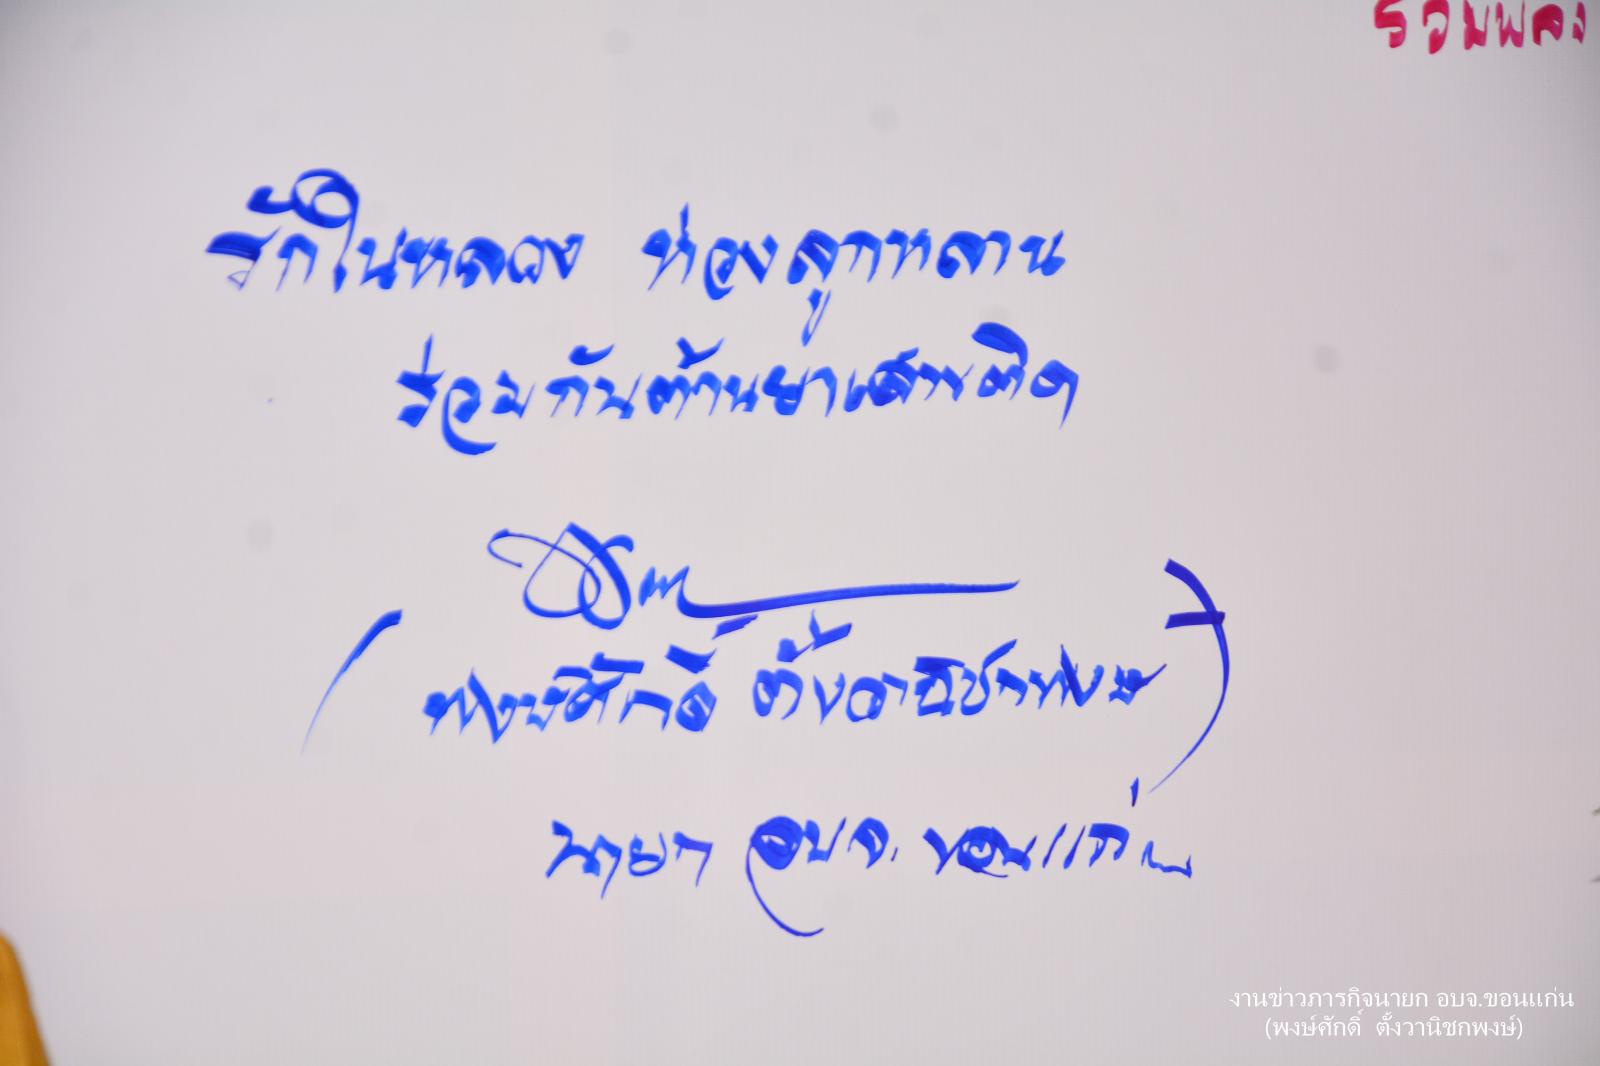 รวมพลัง
รักในหลวง ห่วงลูกหลาน
ร่วมกันต้านยาเสพติด
(พงษ์ศักดิ์ ตั้งวานิชกพงษ์)
นายก อบจ.ขอนแก่น
งานข่าวภารกิจนายก อบจ.ขอนแก่น
(พงษ์ศักดิ์ ตั้งวานิชกพงษ์)